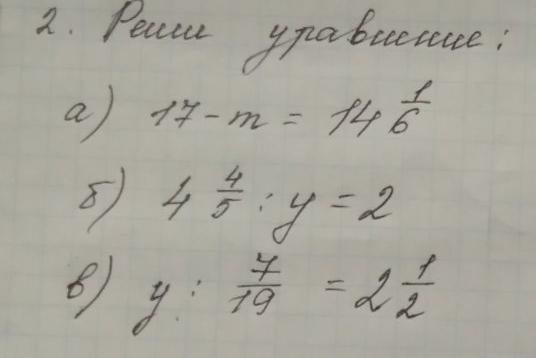 2. Реши уравнение:
а) 17 - m = 14 1/6
б) 4 4/5 : y = 2
в) y : 7/19 = 2 1/2